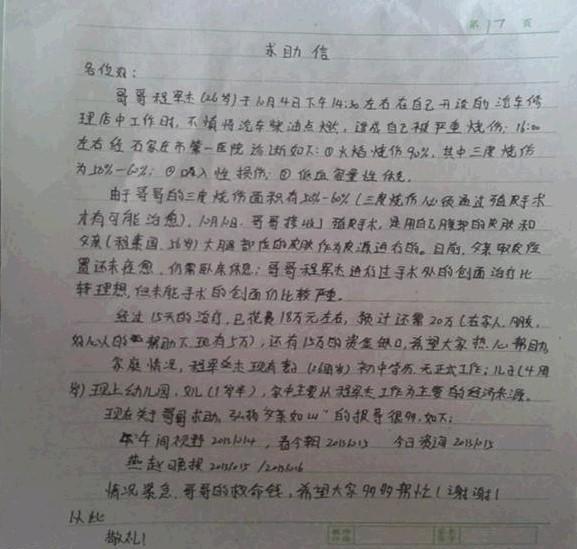 第 17 页
求助信
各位好：
哥哥程军杰(26岁)于10月4日下午14:30左右在自己开设的汽车修
理店中工作时，不慎将汽车柴油点燃，造成自己被严重烧伤；16:00
左右经石家庄市第一医院诊断如下：①火焰烧伤90%，其中三度烧伤
为50%-60%；②吸入性损伤；③低血容量性休克。
由于哥哥的三度烧伤面积有50%-60%(三度烧伤必须通过植皮手术
才有可能治愈)，10月10日，哥哥接收了植皮手术，是用自己腹部的皮肤和
父亲(程秉国 岁)大腿部位的皮肤作为皮源进行的。目前，父亲取皮位
置还未痊愈，仍需卧床休息；哥哥程军杰进行过手术处的创面治疗比
较理想，但未能手术的创面仍比较严重。
经过15天的治疗，已花费18万元左右，预计还需20万(在家人、朋友、
好心人的帮助下，现有5万)，还有15万的资金缺口，希望大家热心帮助。
家庭情况，程军杰现有妻(26周岁)初中毕业，无正式工作；儿子(4周
岁)现上幼儿园，女儿(1岁半)，家中主要以程军杰工作为主要的经济来源。
现在关于哥哥求助，弘扬"父亲如山"的报导很多，如下：
午间视野 20131014，看今朝 20131013 今日资讯 20131015
燕赵晚报 20131015 / 20131016
情况紧急，哥哥的救命钱，希望大家多多帮忙！谢谢！
从此
敬礼！